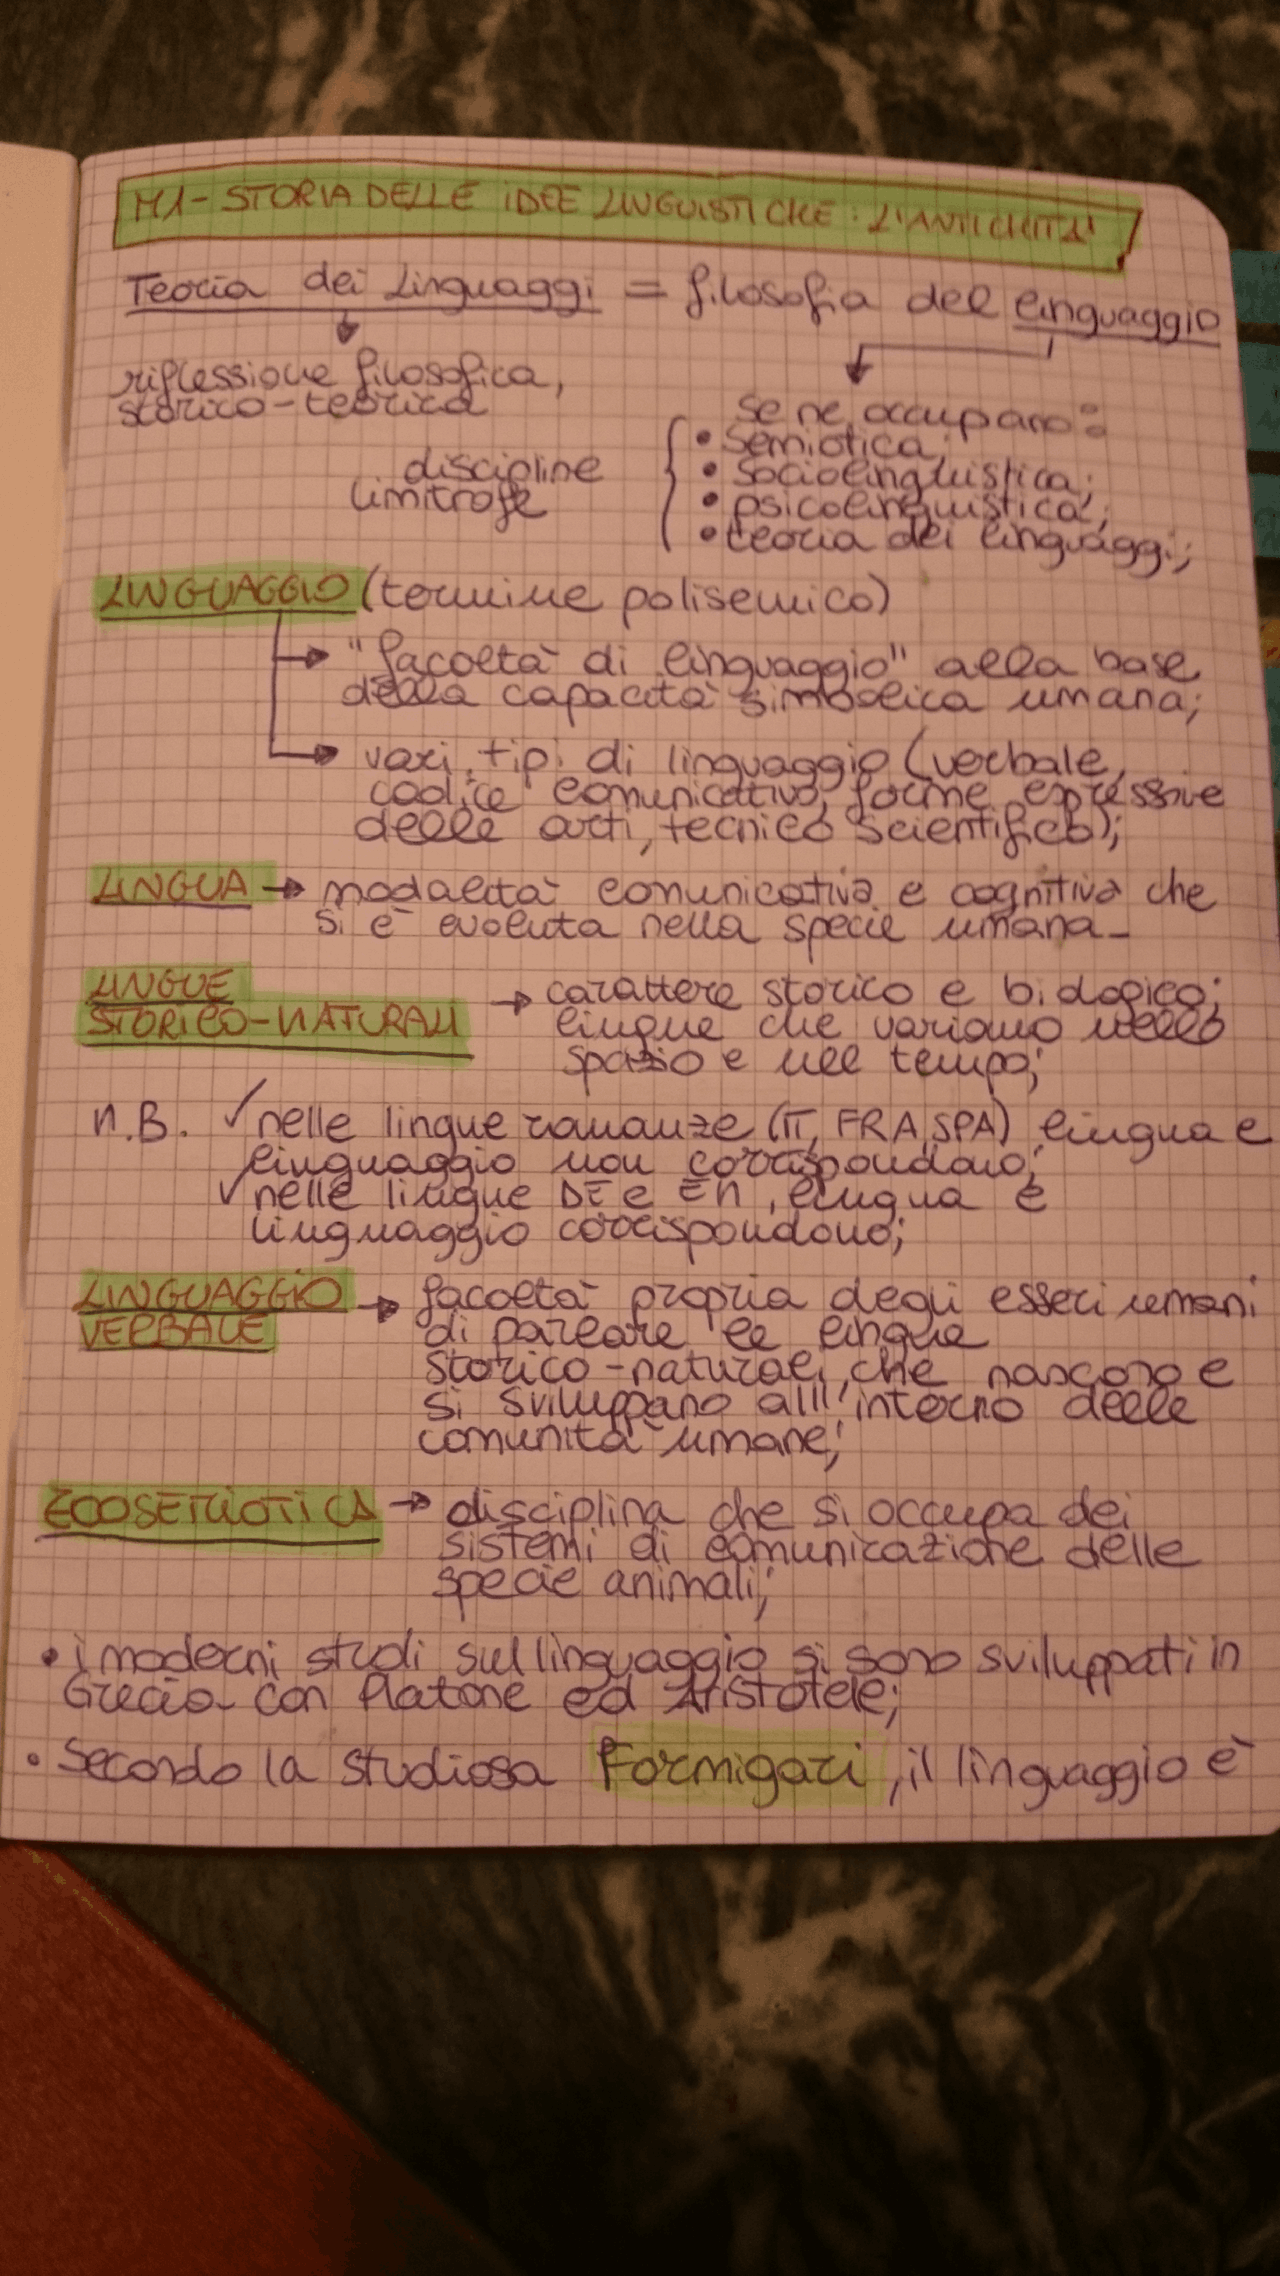 M1-STORIA DELLE IDEE LINGUISTICHE: L'ANTICHITA'
Teoria dei Linguaggi = filosofia del linguaggio
riflessione filosofica,
storico-teorica
se ne occupano:
• semiotica;
• sociolinguistica;
• psicolinguistica;
• teoria dei linguaggi;
discipline
limitrofe
LINGUAGGIO (termine polisemico)
→ "facoltà di linguaggio" alla base
della capacità simbolica umana;
→ vari tipi di linguaggio (verbale,
codice comunicativo, forme espressive
delle arti, tecnico scientifico);
LINGUA → modalità comunicativa e cognitiva che
si è evoluta nella specie umana-
LINGUE
STORICO-NATURALI → carattere storico e biologico;
lingue che variano nello
spazio e nel tempo;
n.B. ✓ nelle lingue romanze (IT, FRA, SPA) lingua e
linguaggio non corrispondono;
✓ nelle lingue DE e EN, lingua e
linguaggio corrispondono;
LINGUAGGIO
VERBALE → facoltà propria degli esseri umani
di parlare le lingue
storico-naturali, che nascono e
si sviluppano all'interno delle
comunità umane;
ZOOSEMIOTICA → disciplina che si occupa dei
sistemi di comunicazione delle
specie animali;
• i moderni studi sul linguaggio si sono sviluppati in
Grecia con Platone ed Aristotele;
• Secondo la studiosa Formigari, il linguaggio è